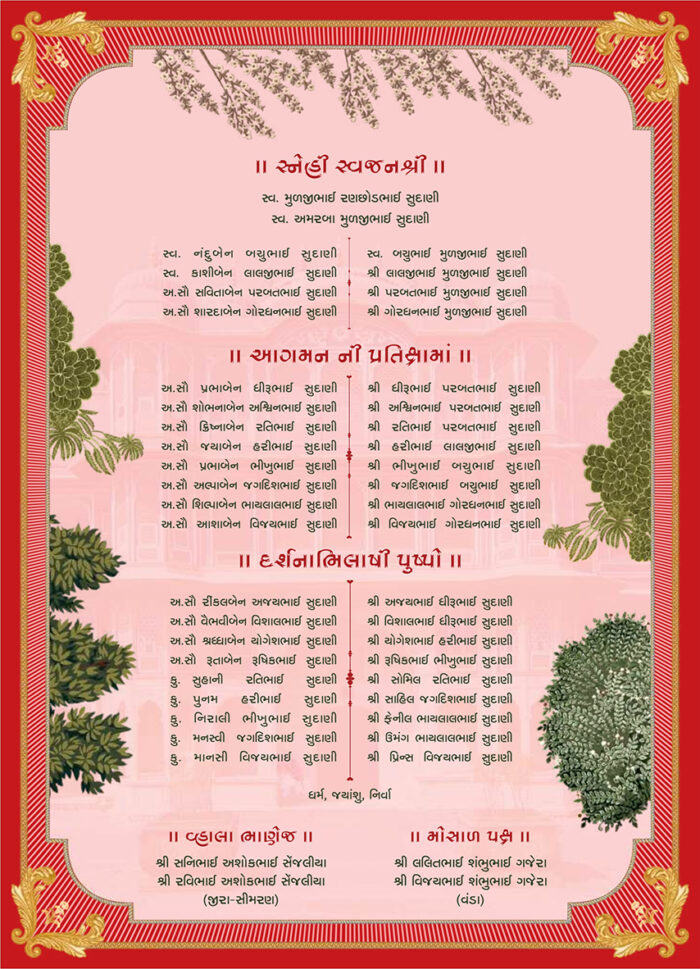 ॥ સ્નેહી સ્વજનશ્રી ॥
સ્વ. મુળજીભાઈ રણછોડભાઈ સુદાણી
સ્વ. અમરબા મુળજીભાઈ સુદાણી
સ્વ. નંદુબેન બચુભાઈ સુદાણી
સ્વ. કાશીબેન લાલજીભાઈ સુદાણી
અ.સૌ સવિતાબેન પરબતભાઈ સુદાણી
અ.સૌ શારદાબેન ગોરધનભાઈ સુદાણી
સ્વ. બચુભાઈ મુળજીભાઈ સુદાણી
શ્રી લાલજીભાઈ મુળજીભાઈ સુદાણી
શ્રી પરબતભાઈ મુળજીભાઈ સુદાણી
શ્રી ગોરધનભાઈ મુળજીભાઈ સુદાણી
॥ આગમન ની પ્રતિક્ષામાં ॥
અ.સૌ પ્રભાબેન ધીરૂભાઈ સુદાણી
અ.સૌ શોભનાબેન અશ્વિનભાઈ સુદાણી
અ.સૌ ક્રિષ્નાબેન રતિભાઈ સુદાણી
અ.સૌ જયાબેન હરીભાઈ સુદાણી
અ.સૌ પ્રભાબેન ભીખુભાઈ સુદાણી
અ.સૌ અલ્પાબેન જગદિશભાઈ સુદાણી
અ.સૌ શિલ્પાબેન ભાયલાલભાઈ સુદાણી
અ.સૌ આશાબેન વિજયભાઈ સુદાણી
શ્રી ધીરૂભાઈ પરબતભાઈ સુદાણી
શ્રી અશ્વિનભાઈ પરબતભાઈ સુદાણી
શ્રી રતિભાઈ પરબતભાઈ સુદાણી
શ્રી હરીભાઈ લાલજીભાઈ સુદાણી
શ્રી ભીખુભાઈ બચુભાઈ સુદાણી
શ્રી જગદિશભાઈ બચુભાઈ સુદાણી
શ્રી ભાયલાલભાઈ ગોરધનભાઈ સુદાણી
શ્રી વિજયભાઈ ગોરધનભાઈ સુદાણી
॥ દર્શનાભિલાષી પુષ્પો ॥
અ.સૌ રીંકલબેન અજયભાઈ સુદાણી
અ.સૌ વૈભવીબેન વિશાલભાઈ સુદાણી
અ.સૌ શ્રધ્ધાબેન યોગેશભાઈ સુદાણી
અ.સૌ રૂતાબેન રૂષિકભાઈ સુદાણી
કુ. સુહાની રતિભાઈ સુદાણી
કુ. પુનમ હરીભાઈ સુદાણી
કુ. નિરાલી ભીખુભાઈ સુદાણી
કુ. મનસ્વી જગદિશભાઈ સુદાણી
કુ. માનસી વિજયભાઈ સુદાણી
શ્રી અજયભાઈ ધીરૂભાઈ સુદાણી
શ્રી વિશાલભાઈ ધીરૂભાઈ સુદાણી
શ્રી યોગેશભાઈ હરીભાઈ સુદાણી
શ્રી રૂષિકભાઈ ભીખુભાઈ સુદાણી
શ્રી સોમિલ રતિભાઈ સુદાણી
શ્રી સાહિલ જગદિશભાઈ સુદાણી
શ્રી ફેનીલ ભાયલાલભાઈ સુદાણી
શ્રી ઉમંગ ભાયલાલભાઈ સુદાણી
શ્રી પ્રિન્સ વિજયભાઈ સુદાણી
ધર્મ, જયાંશુ, નિર્વા
॥ વ્હાલા ભાણેજ ॥
શ્રી સનિભાઈ અશોકભાઈ સેંજલીયા
શ્રી રવિભાઈ અશોકભાઈ સેંજલીયા
(જીરા-સીમરણ)
॥ મોસાળ પક્ષ ॥
શ્રી લલિતભાઈ શંભુભાઈ ગજેરા
શ્રી વિજયભાઈ શંભુભાઈ ગજેરા
(વંડા)